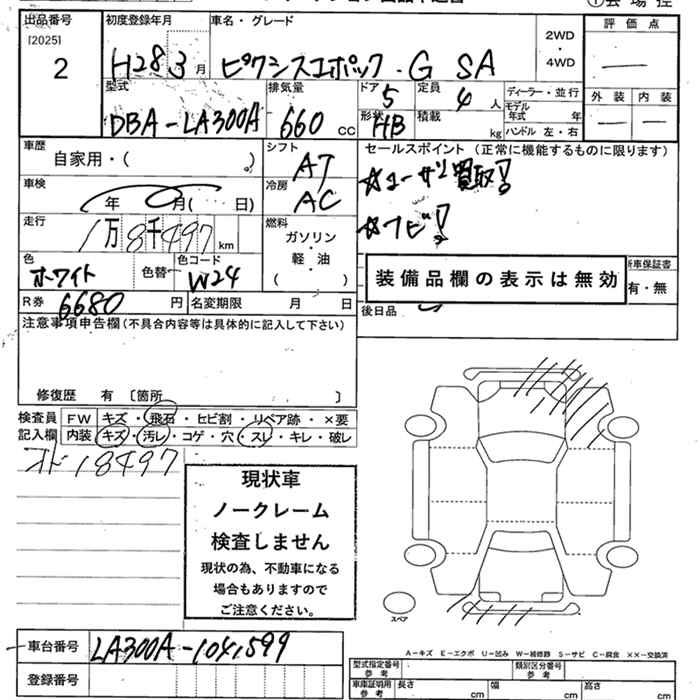 出品番号 初度登録年月 車名・グレード 評価点
[2025] 2WD
2 H28 3月 ピクシスエポック・G SA ・ —
4WD
型式 排気量 ドア 5 定員 4人 ディーラー・並行 外装 内装
DBA-LA300A 660 CC 形状 HB 積載 kg モデル年式 年 — —
ハンドル 左・右
車歴 シフト セールスポイント(正常に機能するものに限ります)
自家用・( ) AT ☆ユーザー買取!
車検 冷房
年 月( 日) AC ☆ナビ!
走行 燃料
1万8千497km ガソリン・軽・油
( )
色 色コード 装備品欄の表示は無効 新車保証書
ホワイト 色替— W24 有・無
R券 6680円 名変期限 月 日 後日品
注意事項申告欄(不具合内容等は具体的に記入して下さい)
修復歴 有 〔箇所 〕
検査員 FW キズ・飛石・ヒビ割・リペア跡・×要
記入欄 内装 キズ・汚レ・コゲ・穴・スレ・キレ・破レ
オド18497
現状車
ノークレーム
検査しません
現状の為、不動車になる
場合もありますので
ご注意ください。
スペア
車台番号 LA300A-1041599
登録番号
A-キズ E-エクボ U-凹み W-補修跡 S-サビ C-腐食 ××-交換済
型式指定番号 参考 類別区分番号 参考
車庫証明用 参考 長さ cm 幅 cm 高さ cm